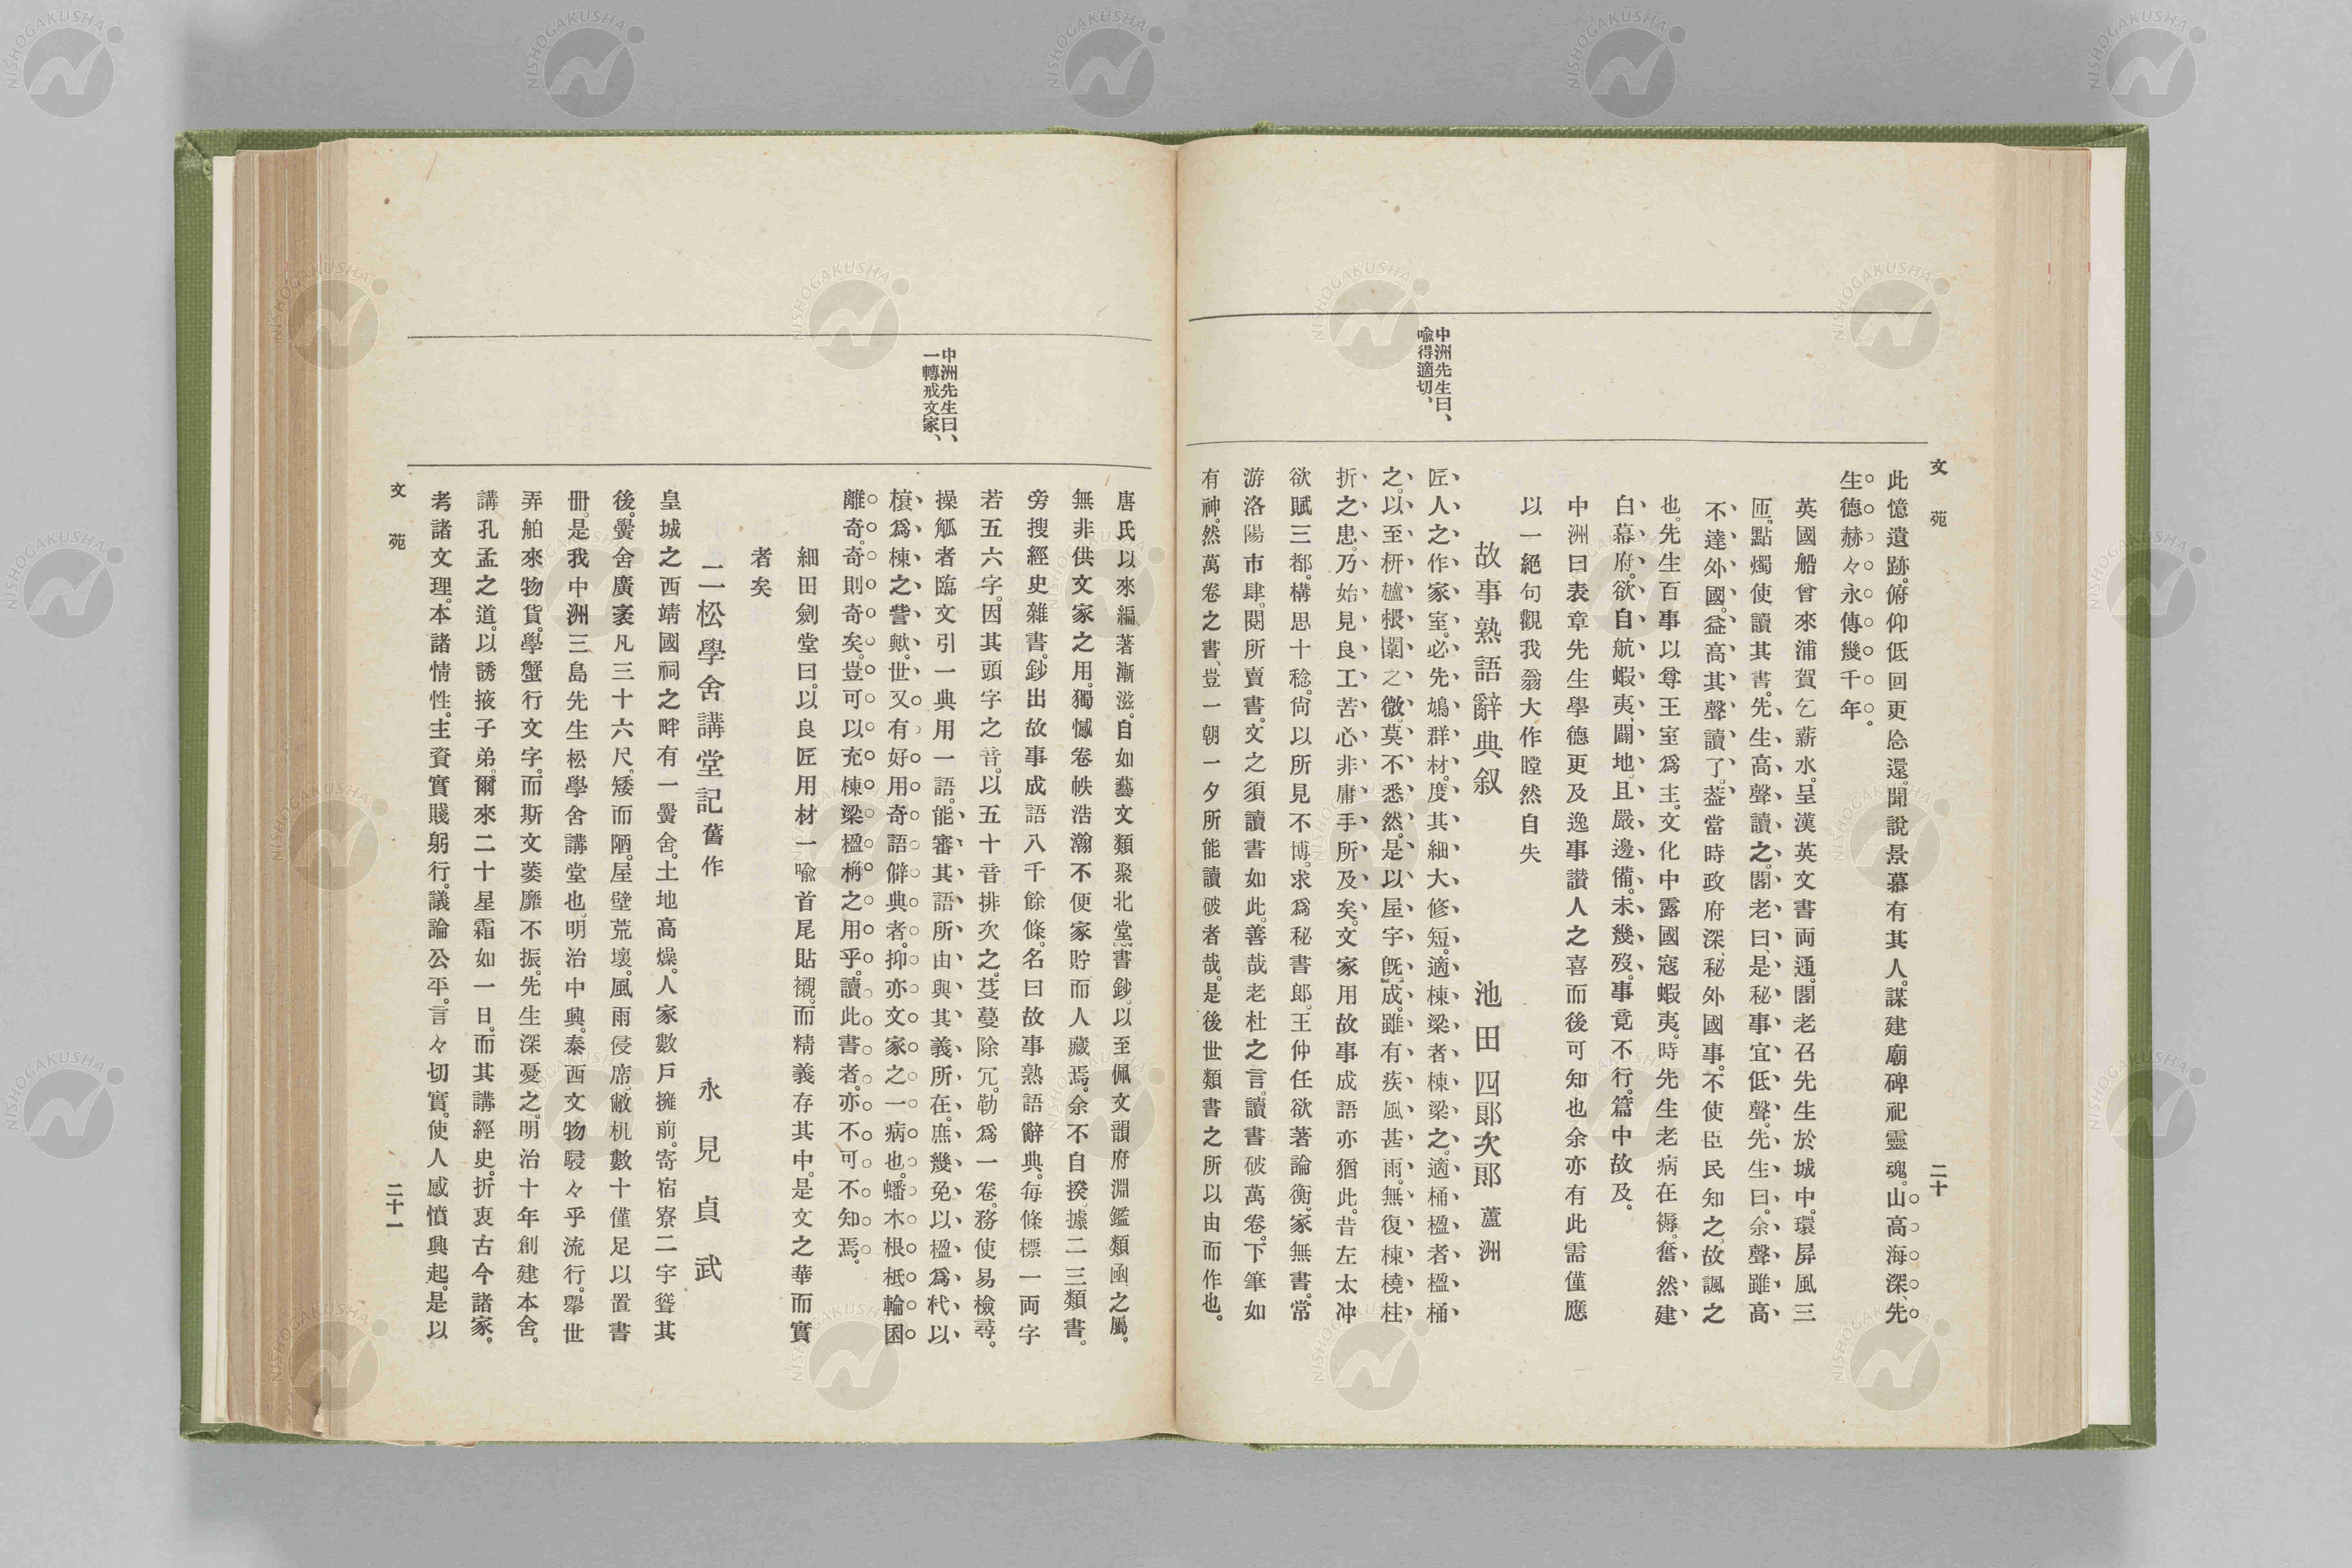 文苑
二十
此憶遺跡。俯仰低回更忩還。聞說景慕有其人。謀建廟碑祀靈魂。山高海深、先
生德赫々永傳幾千年。
英國船曾來浦賀乞薪水。呈漢英文書両通。閣老召先生於城中。環屏風三
匝。點燭使讀其書。先生高聲讀之。閣老曰、是秘事宜低聲。先生曰。余聲雖高
不達外國。益高其聲讀了。蓋當時政府深秘外國事。不使臣民知之。故諷之
也。先生百事以尊王室爲主。文化中露國寇蝦夷。時先生老病在褥。奮然建
白幕府。欲自航蝦夷、闢地、且嚴邊備。未幾歿。事竟不行。篇中故及。
中洲曰表章先生學德更及逸事讃人之喜而後可知也余亦有此需僅應
以一絕句觀我翁大作瞠然自失
故事熟語辭典叙
池田四郎次郎 蘆洲
中洲先生曰、
喩得適切、
匠人之作家室。必先鳩群材。度其細大修短。適棟梁者棟梁之。適桶楹者楹桶
之。以至枅櫨椳闑之微。莫不悉然。是以屋宇既成。雖有疾風甚雨。無復棟橈柱
折之患。乃始見良工苦心非庸手所及矣。文家用故事成語亦猶此。昔左太冲
欲賦三都。構思十稔。尙以所見不博。求爲秘書郎。王仲任欲著論衡。家無書。常
游洛陽市肆。閱所賣書。文之須讀書如此。善哉老杜之言。讀書破萬卷。下筆如
有神。然萬卷之書、豈一朝一夕所能讀破者哉。是後世類書之所以由而作也。
唐氏以來編著漸滋。自如藝文類聚北堂書鈔、以至佩文韻府淵鑑類函之屬。
無非供文家之用。獨憾卷帙浩瀚不便家貯而人藏焉。余不自揆、據二三類書。
旁搜經史雜書。鈔出故事成語八千餘條。名曰故事熟語辭典。每條標一両字
若五六字。因其頭字之音。以五十音排次之。芟蔓除冗。勒爲一卷。務使易檢尋。
中洲先生曰、
一轉戒文家、
操觚者臨文引一典用一語。能審其語所由與其義所在。庶幾免以楹爲杙、以
榱爲棟之訾歟。世又有好用奇語僻典者。抑亦文家之一病也。蟠木根柢輪囷
離奇。奇則奇矣。豈可以充棟梁楹桷之用乎。讀此書者。亦不可不知焉。
細田劍堂曰。以良匠用材一喩首尾貼襯。而精義存其中。是文之華而實
者矣
二松學舍講堂記 舊作
永見貞武
皇城之西靖國祠之畔有一黌舍。土地高燥。人家數戶擁前。寄宿寮二字聳其
後。黌舍廣袤凡三十六尺。矮而陋。屋壁荒壞。風雨侵席。敝机數十僅足以置書
冊。是我中洲三島先生松學舍講堂也。明治中興。泰西文物駸々乎流行。擧世
弄舶來物貨。學蟹行文字。而斯文萎靡不振。先生深憂之。明治十年創建本舍。
講孔孟之道。以誘掖子弟。爾來二十星霜如一日。而其講經史。折衷古今諸家。
考諸文理。本諸情性。主資實賤躬行。議論公平。言々切實。使人感憤興起。是以
文苑
二十一